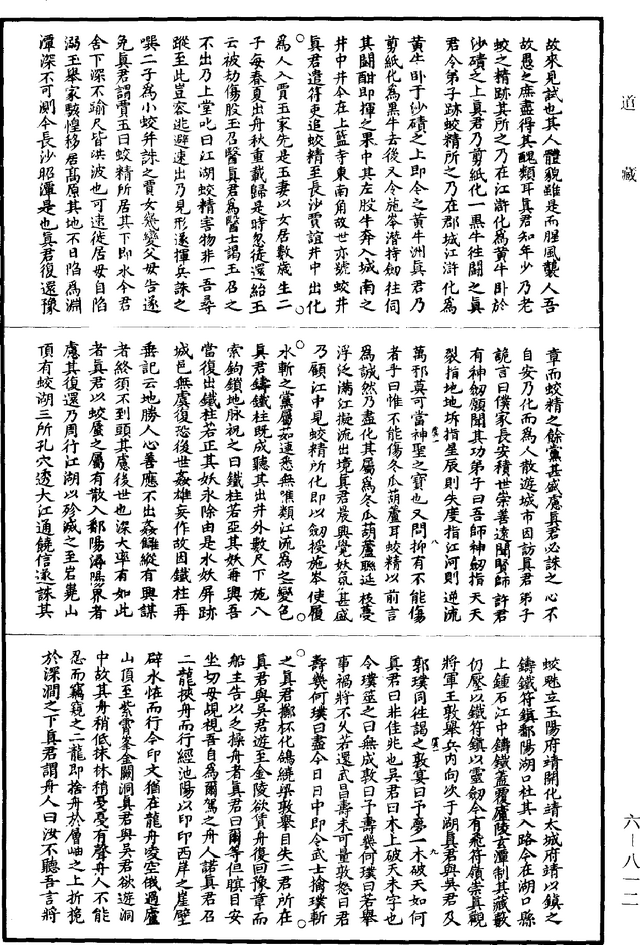 故來見試也其人體貌雖是而腥風襲人吾
故愚之庶盡得其醜類耳真君知年少乃老
蛟之精跡其所之乃在江滸化為黃牛臥於
沙磧之上真君乃剪紙化一黑牛往鬪之真
君令弟子跡蛟精所之乃在郡城江滸化為
黃牛臥于沙磧之上即今之黃牛洲真君乃
剪紙化為黑牛去後又令施岑潛持劒往伺
其鬪酣即揮之果中其左股牛奔入城南之
井中井今在上藍寺東南角故世亦號蛟井
真君遣符吏追蛟精至長沙賈誼井中出化
為人入賈玉家先是玉妻以女居數歲生二
子每春夏出舟秋重載歸是時忽徒還紿玉
云被劫傷股玉召醫真君為醫士謁玉召之
不出乃上堂叱曰江湖蛟精害物非一吾尋
蹤至此豈容逃避速出乃見形遂揮兵誅之
噀二子為小蛟并誅之賈女幾變父母告遂
免真君謂賈玉曰蛟精所居其下即水今君
舍下深不踰尺皆洪波也可速徙居毋自陷
溺玉舉家駭惶移居高原其地不日陷為淵
潭深不可測今長沙昭潭是也真君復還豫
章而蛟精之餘黨甚盛慮真君必誅之心不
自安乃化而為人散遊城市因訪真君弟子
詭言曰僕家長安積世崇善遠聞賢師許君
有神劒願聞其功弟子曰吾師神劒指天天
裂指地地坼指星辰則失度指江河則逆流
萬邪莫可當神聖之寶也又問抑有不能傷
者乎曰惟不能傷冬瓜葫蘆耳蛟精以前言
為誠然乃盡化其屬為冬瓜葫蘆聯延枝蔓
浮泛滿江擬流出境真君晨興覺妖氛甚盛
乃顧江中見蛟精所化即以劒授施岑使履
水斬之黨屬茹連悉無噍類江流為之變色
真君鑄鐵柱既成聽其出井外數尺下施八
索鉤鎖地脉祝之曰鐵柱若亞其妖再興吾
當復出鐵柱若正其妖永除由是水妖屏跡
城邑無虞復恐後世姦雄妄作故因鐵柱再
垂記云地勝人心善應不出姦讎縱有興謀
者終須不到頭其慮後世也深大率有如此
者真君以蛟蜃之屬有散入鄱陽潯陽界者
慮其復還乃周行江湖以殄滅之至岩嶤山
頂有蛟湖三所孔穴透大江通饒信遂誅其
蛟魅立玉陽府靖開化靖太城府靖以鎮之
鑄鐵符鎮鄱陽湖口杜其入路今在湖口縣
上鍾石江中鑄鐵蓋覆廬陵玄潭制其藏藪
仍壓以鐵符鎮以靈劒今有飛符嶺崇真觀
將軍王敦舉兵內向次于湖真君與吳君及
郭璞同往謁之敦宴曰予夢一木破天如何
真君曰非佳兆也吳君曰木上破天未字也
令璞筮之曰無成敦曰予壽幾何璞曰若舉
事禍將不久若還武昌壽未可量敦怒曰君
壽幾何璞曰盡今日日中即令武士擒璞斬
之真君擲杯化鴿繞梁敦舉目失二君所在
真君與吳君遊至金陵欲賃舟復回豫章而
船主告以乏操舟者真君曰爾等但瞑目安
坐切毋覘視吾自為爾駕之舟人諾真君召
二龍挾舟而行經池陽以印印西岸之崖壁
辟水怪而行今印文猶在龍舟凌空俄過廬
山頂至紫霄峯金闕洞真君與吳君欲遊洞
中故其舟稍低抹林梢戞戞有聲舟人不能
忍而竊窺之二龍即捨舟於層岫之上折桅
於深澗之下真君謂舟人曰汝不聽吾言將
道藏
六—八一二